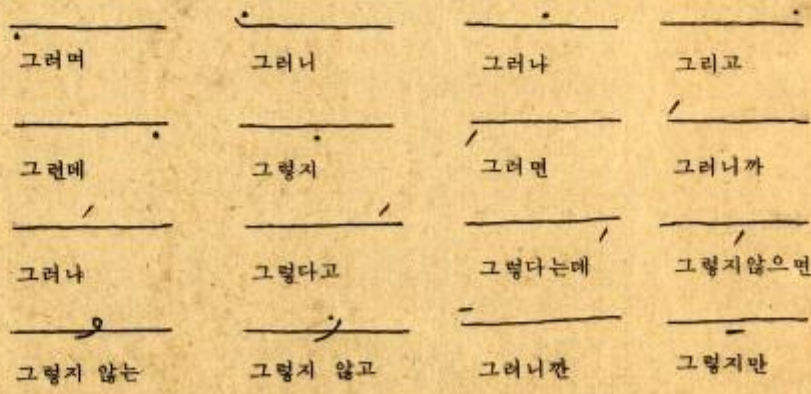 그러며 그러니 그러나 그리고
그런데 그렇지 그러면 그러니까
그러냐 그렇다고 그렇다는데 그렇지않으면
그렇지 않는 그렇지 않고 그러니깐 그렇지만